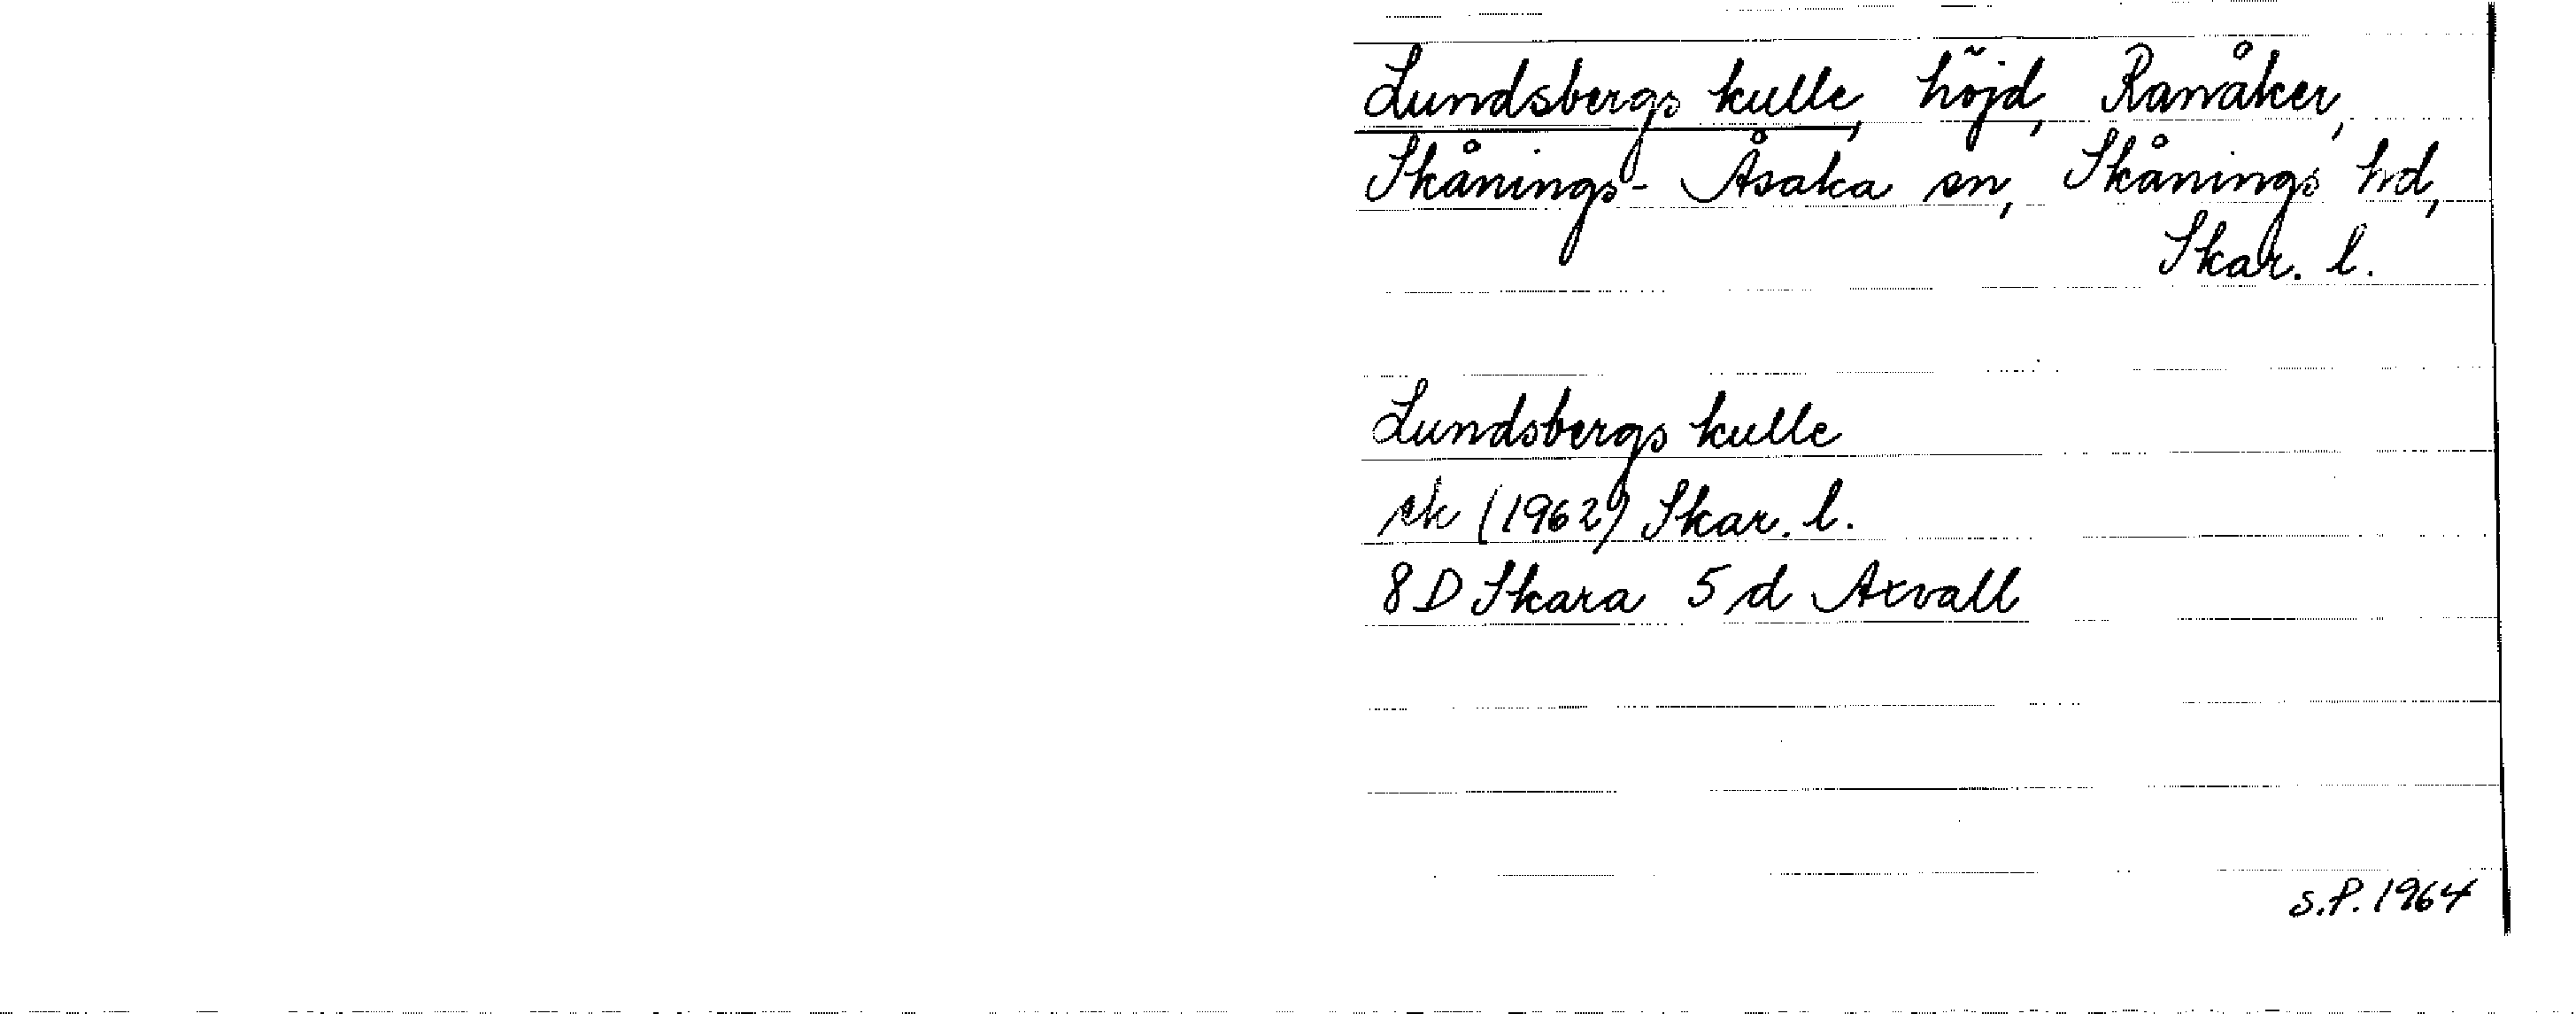 Lundsbergs kulle, höjd, Ranåker,
Skånings-Åsaka sn, Skånings hd,
Skar. l.
Lundsbergs kulle
ek (1962) Skar. l.
8 D Skara 5 d Axvall
S.P. 1964